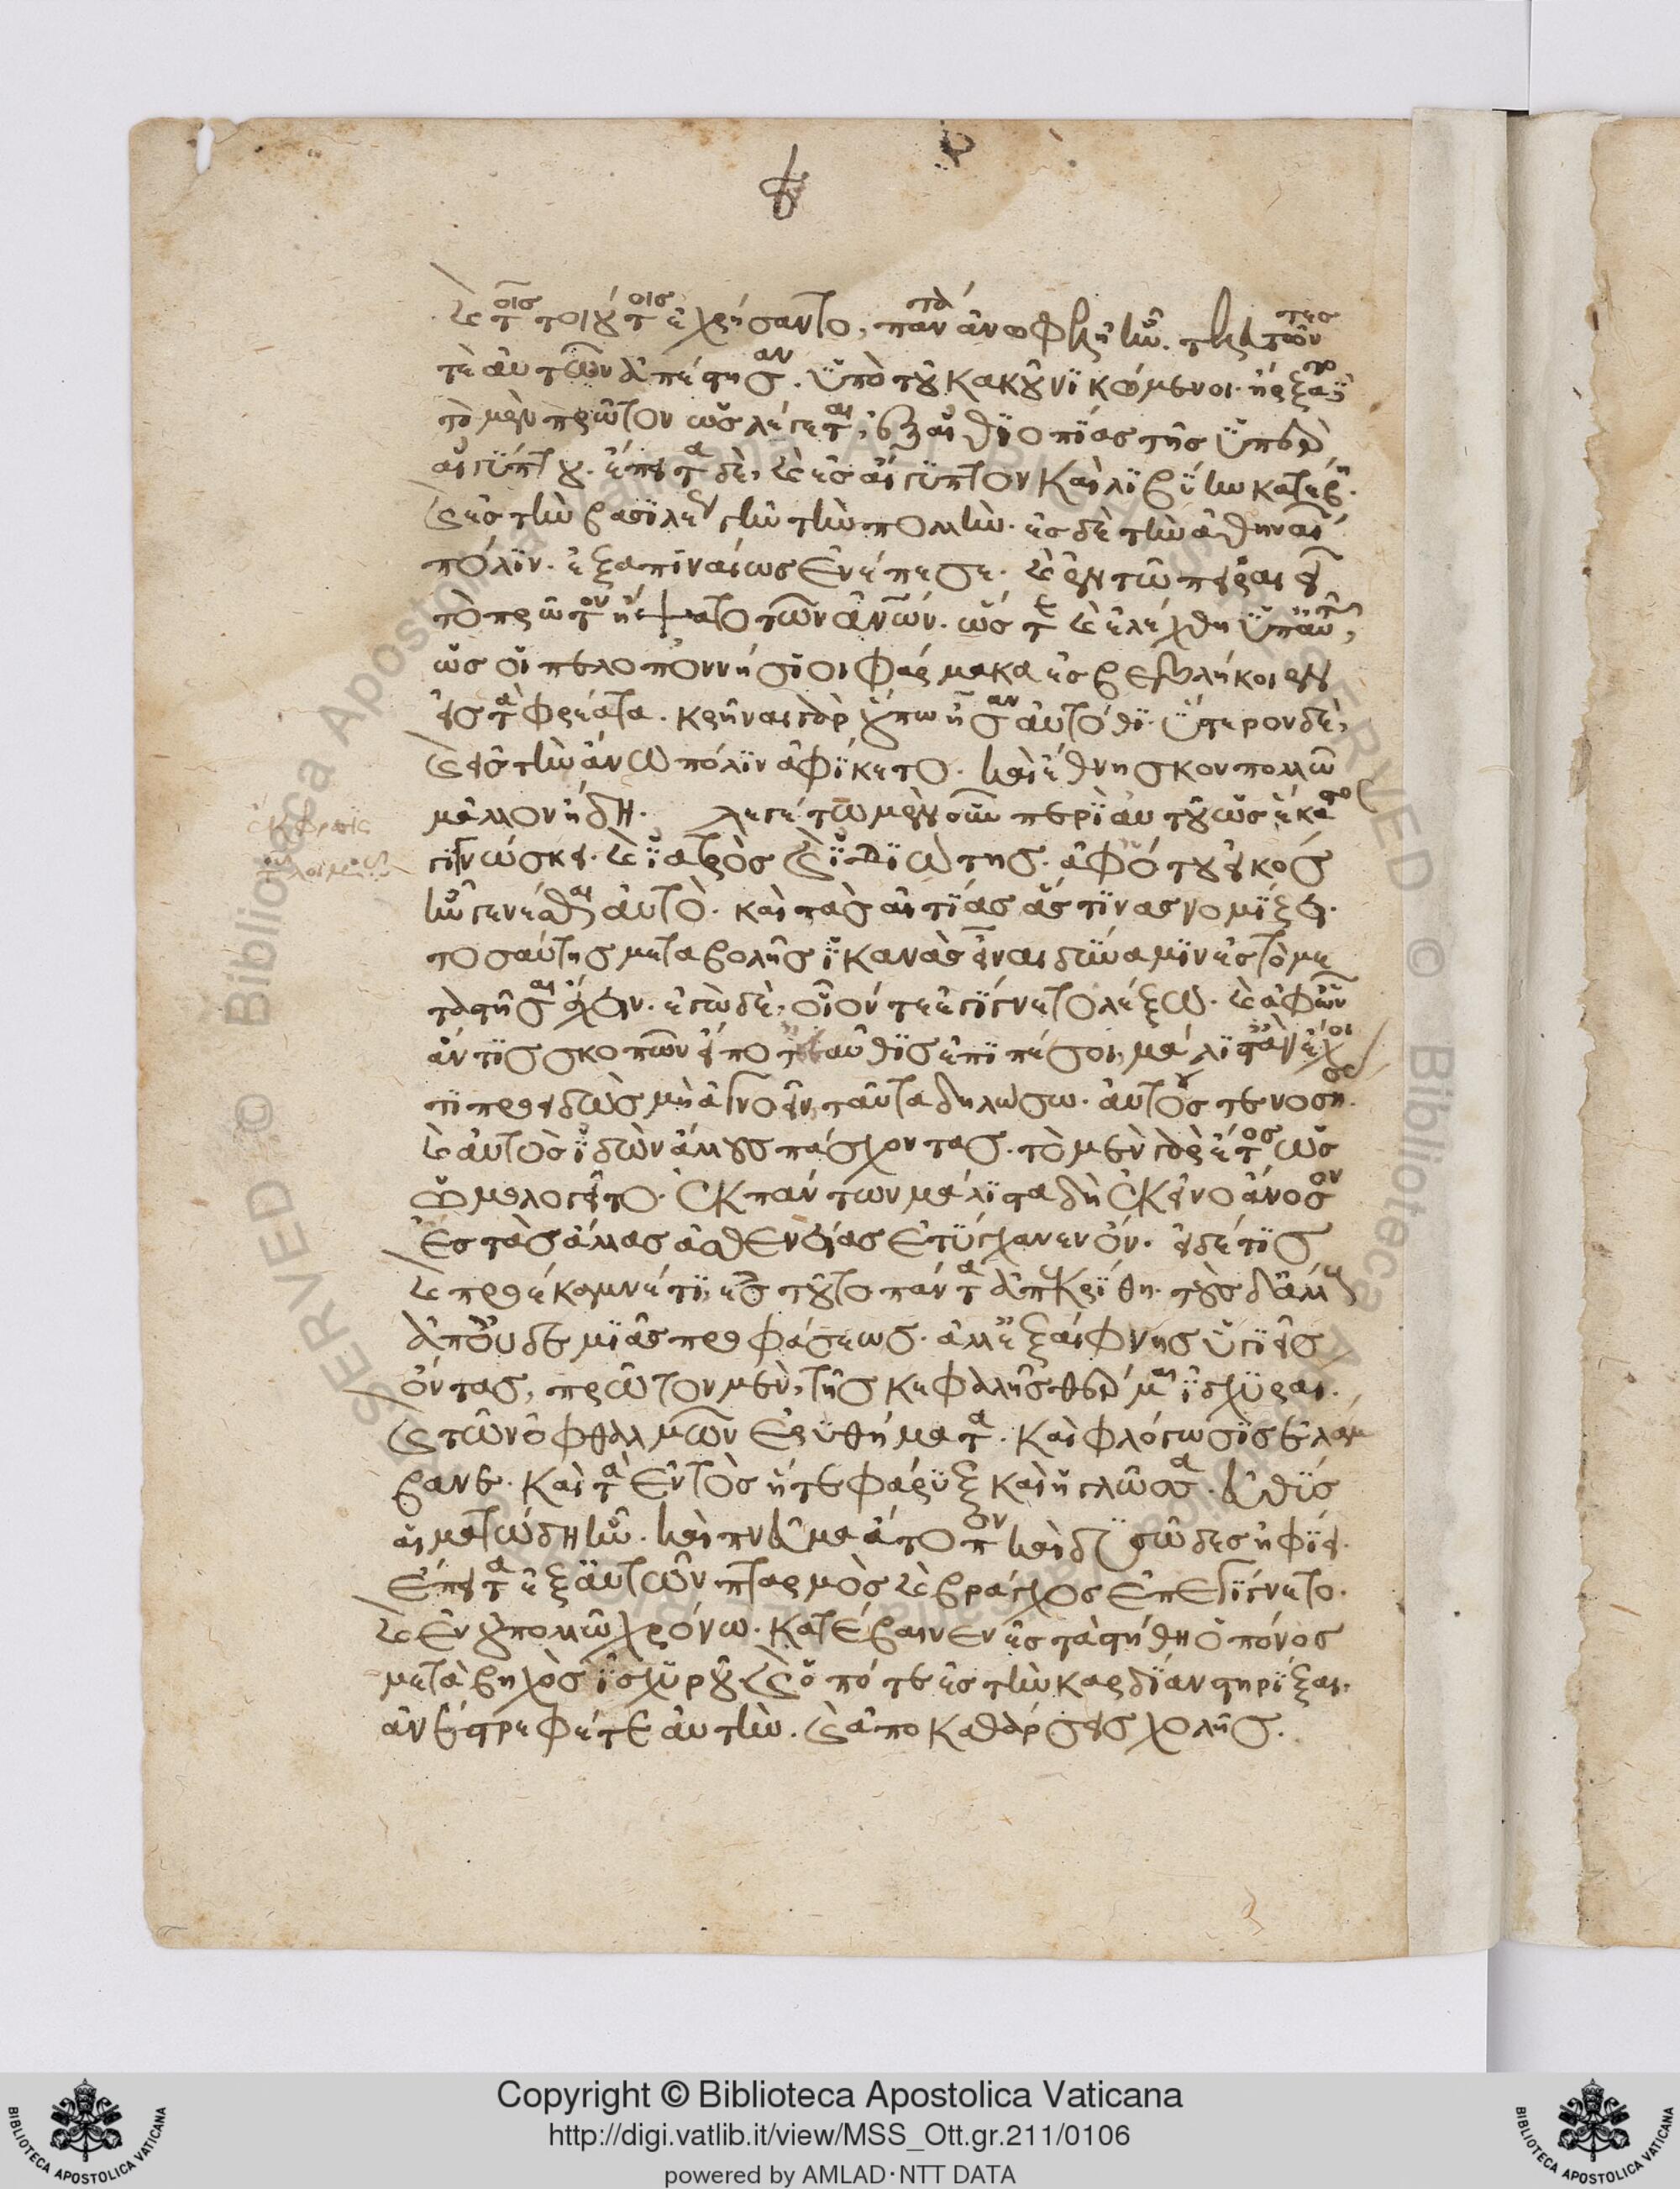 καὶ τοῖς τοιούτοις ἐχρήσαντο, πάντα ἀνωφελῆ ἦν. τελευτῶντες
τὲ αὐτῶν ἀπέστησαν. ὑπὸ τοῦ κακοῦ νικώμενοι. ἤρξατο
τὸ μὲν πρῶτον ὡς λέγεται, ἐξ αἰθιοπίας τῆς ὑπὲρ
αἰγύπτου. ἔπειτα δὲ, καὶ ἐς αἴγυπτον καὶ λιβύην κατέβη.
καὶ ἐς τὴν βασιλέως γῆν τὴν πολλήν. ἐς δὲ τὴν ἀθηναίων
πόλιν. ἐξαπιναίως ἐνέπεσε. καὶ ἐν τῶ πειραιεῖ
τὸ πρῶτον ἥψατο τῶν ἀνων. ὥστε καὶ ἐλέχθη ὑπ' αὐτῶν,
ὡς οἱ πελοποννήσιοι φάρμακα ἐσβεβλήκοιεν
ἐς τὰ φρέατα. κρῆναι γὰρ οὔπω ἦσαν αὐτόθι. ὕστερον δὲ,
καὶ ἐς τὴν ἄνω πόλιν ἀφίκετο. καὶ ἔθνησκον πολλῶ
μᾶλλον ἤδη. λεγέτω μὲν οὖν περὶ αὐτοῦ ὡς ἕκαστος
γιγνώσκει. καὶ ἰατρὸς καὶ ἰδιώτης. ἀφ' ὅτου εἰκὸς
ἦν γενέσθαι αὐτό. καὶ τὰς αἰτίας ἅς τινας νομίζει.
τοσαύτης μεταβολῆς ἱκανὰς εἶναι δύναμιν ἐς τὸ με
ταστῆσαι σχεῖν. ἐγὼ δὲ, οἷόν τε ἐγίγνετο λέξω. καὶ ἀφ' ὧν
ἄν τις σκοπῶν εἴ ποτε καὶ αὖθις ἐπιπέσοι, μάλιστ' ἂν ἔχοι
τι προειδὼς μὴ ἀγνοεῖν, ταῦτα δηλώσω. αὐτός τε νοσήσας
καὶ αὐτὸς ἰδὼν ἄλλους πάσχοντας. τὸ μὲν γὰρ ἔτος ὡς
ὡμολογεῖτο. ἐκ πάντων μάλιστα δὴ ἐκεῖνο ἄνοσον
ἐς τὰς ἄλλας ἀσθενείας ἐτύγχανεν ὄν. εἰ δέ τις
καὶ προέκαμνέ τι, ἐς τοῦτο πάντα ἀπεκρίθη. τοὺς δ' ἄλλους
ἀπ' οὐδεμιᾶς προφάσεως. ἀλλ' ἐξαίφνης ὑγιεῖς
ὄντας, πρῶτον μὲν, τῆς κεφαλῆς θέρμαι ἰσχυραι.
καὶ τῶν ὀφθαλμῶν ἐρυθήματα. καὶ φλόγωσις ἐλάμ
βανε. καὶ τὰ ἐντὸς ἥ τε φάρυξ καὶ ἡ γλῶσσα. εὐθὺς
αἱματώδη ἦν. καὶ πνεῦμα ἄτοπον καὶ δυσῶδες ἠφίει.
ἔπειτα ἐξ αὐτῶν πταρμὸς καὶ βράγχος ἐπεγίγνετο.
καὶ ἐν οὐ πολλῶ χρόνω. κατέβαινεν ἐς τὰ στήθη ὁ πόνος
μετὰ βηχὸς ἰσχυροῦ καὶ ὁπότε ἐς τὴν καρδίαν στηρίξαι.
ἀνέστρεφέ τε αὐτήν. καὶ ἀποκαθάρσεις χολῆς.
Copyright © Biblioteca Apostolica Vaticana
http://digi.vatlib.it/view/MSS_Ott.gr.211/0106
powered by AMLAD·NTT DATA
BIBLIOTECA APOSTOLICA VATICANA
BIBLIOTECA APOSTOLICA VATICANA